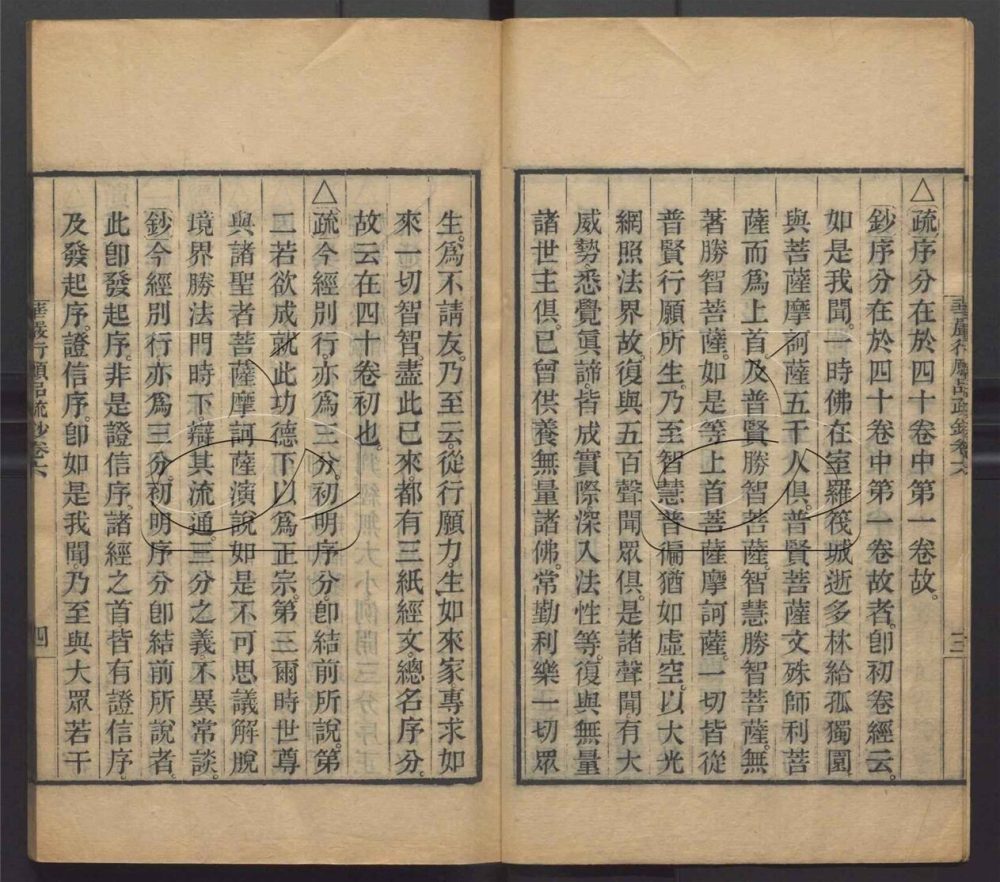 △疏序分在於四十卷中第一卷故。
鈔序分在於四十卷中第一卷故者。卽初卷經云。
如是我聞。一時佛在室羅筏城逝多林給孤獨園
與菩薩摩訶薩五千人俱。普賢菩薩文殊師利菩
薩而爲上首。及普賢勝智菩薩。智慧勝智菩薩。無
著勝智菩薩。如是等上首菩薩摩訶薩。一切皆從
普賢行願所生。乃至智慧普徧猶如虛空。以大光
網照法界故。復與五百聲聞眾俱。是諸聲聞有大
威勢悉覺眞諦皆成實際深入法性等。復與無量
諸世主俱。已曾供養無量諸佛。常勤利樂一切眾
華嚴行願品疏鈔卷六
三
生。爲不請友。乃至云從行願力生。生如來家專求如
來一切智智。盡此已來。都有三紙經文。總名序分。
故云在四十卷初也。
△疏今經別行。亦爲三分。初明序分卽結前所說。第
二若欲成就此功德下以爲正宗。第三爾時世尊
與諸聖者菩薩摩訶薩演說如是不可思議解脫
境界勝法門時下辯其流通。三分之義。不異常談。
鈔今經別行亦爲三分。初明序分卽結前所說者。
此卽發起序。非是證信序。諸經之首皆有證信序。
及發起序。證信序。卽如是我聞。乃至與大眾若干
華嚴行願品疏鈔卷六
四